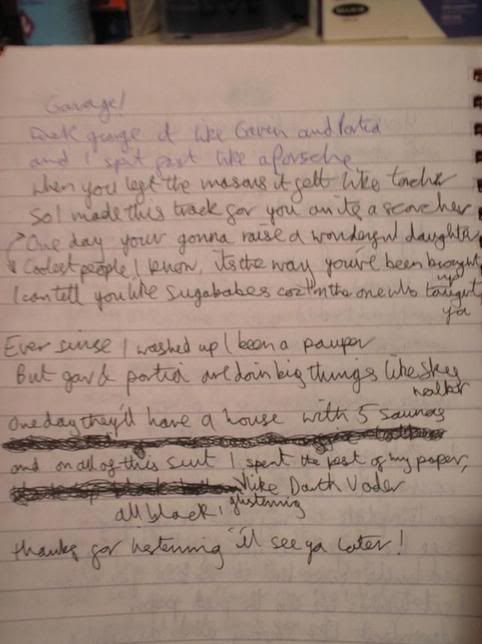 Garage!
garage it like Gaven and Portia
and I spit past like a porsche
when you left the masons it gett like torcher
So I made this track for you on its a scorcher
One day your gonna raise a wonderful daughter
Coolest people I know, its the way you've been brought up
I can tell you like Sugababes coz I'm the one who taught ya
Ever sinse I washed up I been a pauper
But gav & portia are doin big things like Sky walker
One day they'll have a house with 5 saunas
and on all of this suit I spent the rest of my paper,
all black, glistening like Darth Vader
thanks for listening I'll see ya later!